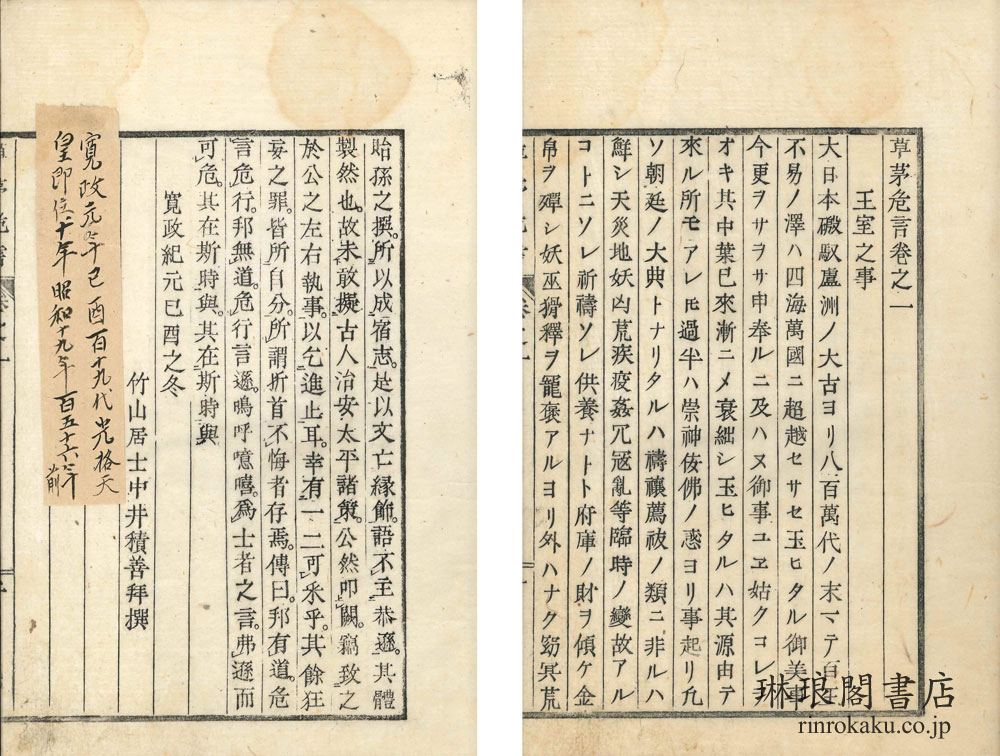 草茅危言卷之一
王室之事
大日本磤馭盧洲ノ大古ヨリ八百萬代ノ末マテ百王
不易ノ澤ハ四海萬國ニ超越セサセ玉ヒタル御美事
今更ヲサヲサ申奉ルニ及ハヌ御事ユヱ姑クコレヲ
オキ其中葉已來漸ニメ衰絀シ玉ヒタルハ其源由テ
來ル所モアレ𪜈過半ハ崇神佞佛ノ惑ヨリ事起リ凢
ソ朝廷ノ大典トナリタルハ禱禳薦祓ノ類ニ非ルハ
鮮シ天災地妖凶荒疾疫姦宄冦亂等臨時ノ變故アル
コトニソレ祈禱ソレ供養ナトト府庫ノ財ヲ傾ケ金
帛ヲ殫シ妖巫猾釋ヲ寵褒アルヨリ外ハナク窈冥荒
貽孫之撰。所以成宿志。是以文亡縁飾。語不主恭遜。其體
製然也。故未敢擬古人治安太平諸策。公然叩闕。竊致之
於公之左右執事。以乞進止耳。幸有一二可釆乎。其餘狂
妄之罪。皆所自分。所謂折首不悔者存焉。傳曰。邦有道。危
言危行。邦無道。危行言遜。嗚呼噫嘻。爲士者之言。弗遜而
可危。其在斯時與。其在斯時與
寛政紀元巳酉之冬
竹山居士中井積善拜撰
寛政元年己酉百十九代光格天
皇即位十年昭和十九年百五十六年前
琳琅閣書店
rinrokaku.co.jp